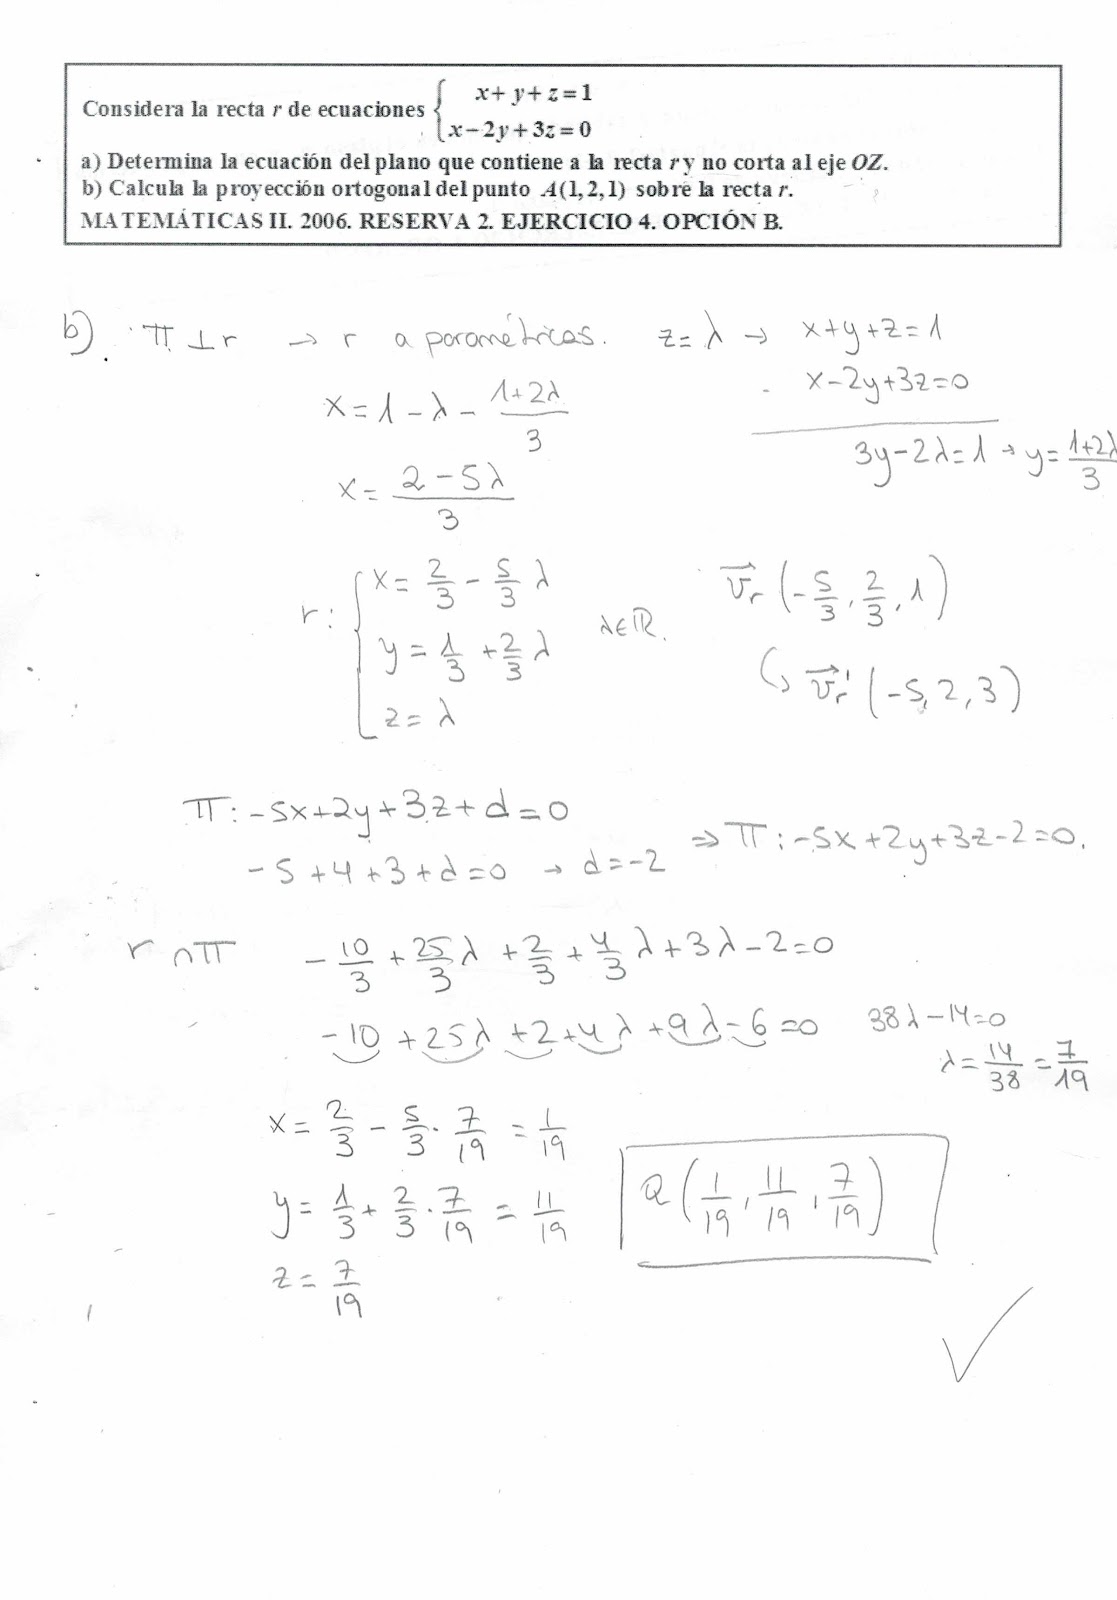 Considera la recta r de ecuaciones { x + y + z = 1
x − 2y + 3z = 0
a) Determina la ecuación del plano que contiene a la recta r y no corta al eje OZ.
b) Calcula la proyección ortogonal del punto A(1, 2, 1) sobre la recta r.
MATEMÁTICAS II. 2006. RESERVA 2. EJERCICIO 4. OPCIÓN B.
b) π ⊥ r → r a paramétricas. z = λ → x+y+z=1
x = 1 − λ − (1+2λ)/3
x−2y+3z=0
3y−2λ=1 → y = (1+2λ)/3
x = (2−5λ)/3
r: { x = 2/3 − 5/3 λ
y = 1/3 + 2/3 λ λ∈ℝ.
z = λ
v⃗r (−5/3, 2/3, 1)
↳ v⃗r' (−5, 2, 3)
π: −5x+2y+3z+d=0
−5+4+3+d=0 → d=−2 ⇒ π: −5x+2y+3z−2=0.
r ∩ π −10/3 + 25/3 λ + 2/3 + 4/3 λ + 3λ − 2 = 0
−10 + 25λ + 2 + 4λ + 9λ − 6 = 0 38λ − 14 = 0
λ = 14/38 = 7/19
x = 2/3 − 5/3 · 7/19 = 1/19
y = 1/3 + 2/3 · 7/19 = 11/19
z = 7/19
Q (1/19, 11/19, 7/19)